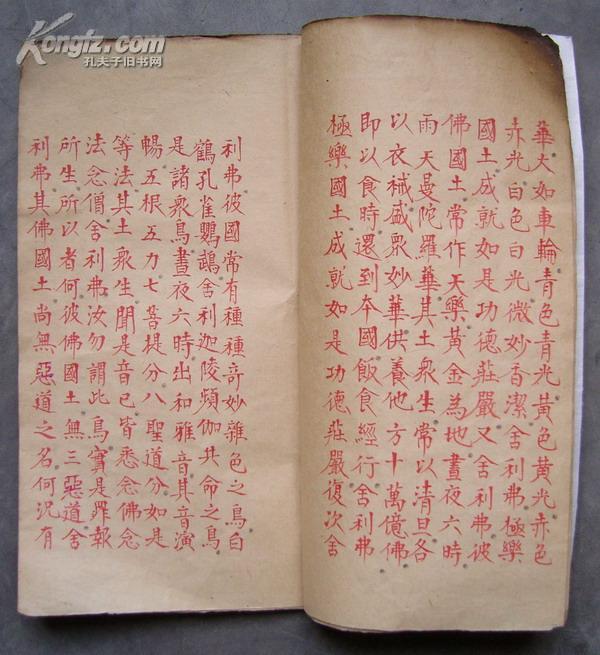 Kongfz.com
孔夫子旧书网
華大如車輪青色青光黃色黃光赤色
赤光白色白光微妙香潔舍利弗極樂
國土成就如是功德莊嚴又舍利弗彼
佛國土常作天樂黃金為地晝夜六時
雨天曼陀羅華其土衆生常以清旦各
以衣祴盛衆妙華供養他方十萬億佛
即以食時還到夲國飯食經行舍利弗
極樂國土成就如是功德莊嚴復次舍
利弗彼國常有種種奇妙雜色之鳥白
鶴孔雀鸚鵡舍利迦陵頻伽共命之鳥
是諸衆鳥晝夜六時出和雅音其音演
暢五根五力七菩提分八聖道分如是
等法其土衆生聞是音已皆悉念佛念
法念僧舍利弗汝勿謂此鳥實是罪報
所生所以者何彼佛國土無三惡道舍
利弗其佛國土尚無惡道之名何況有